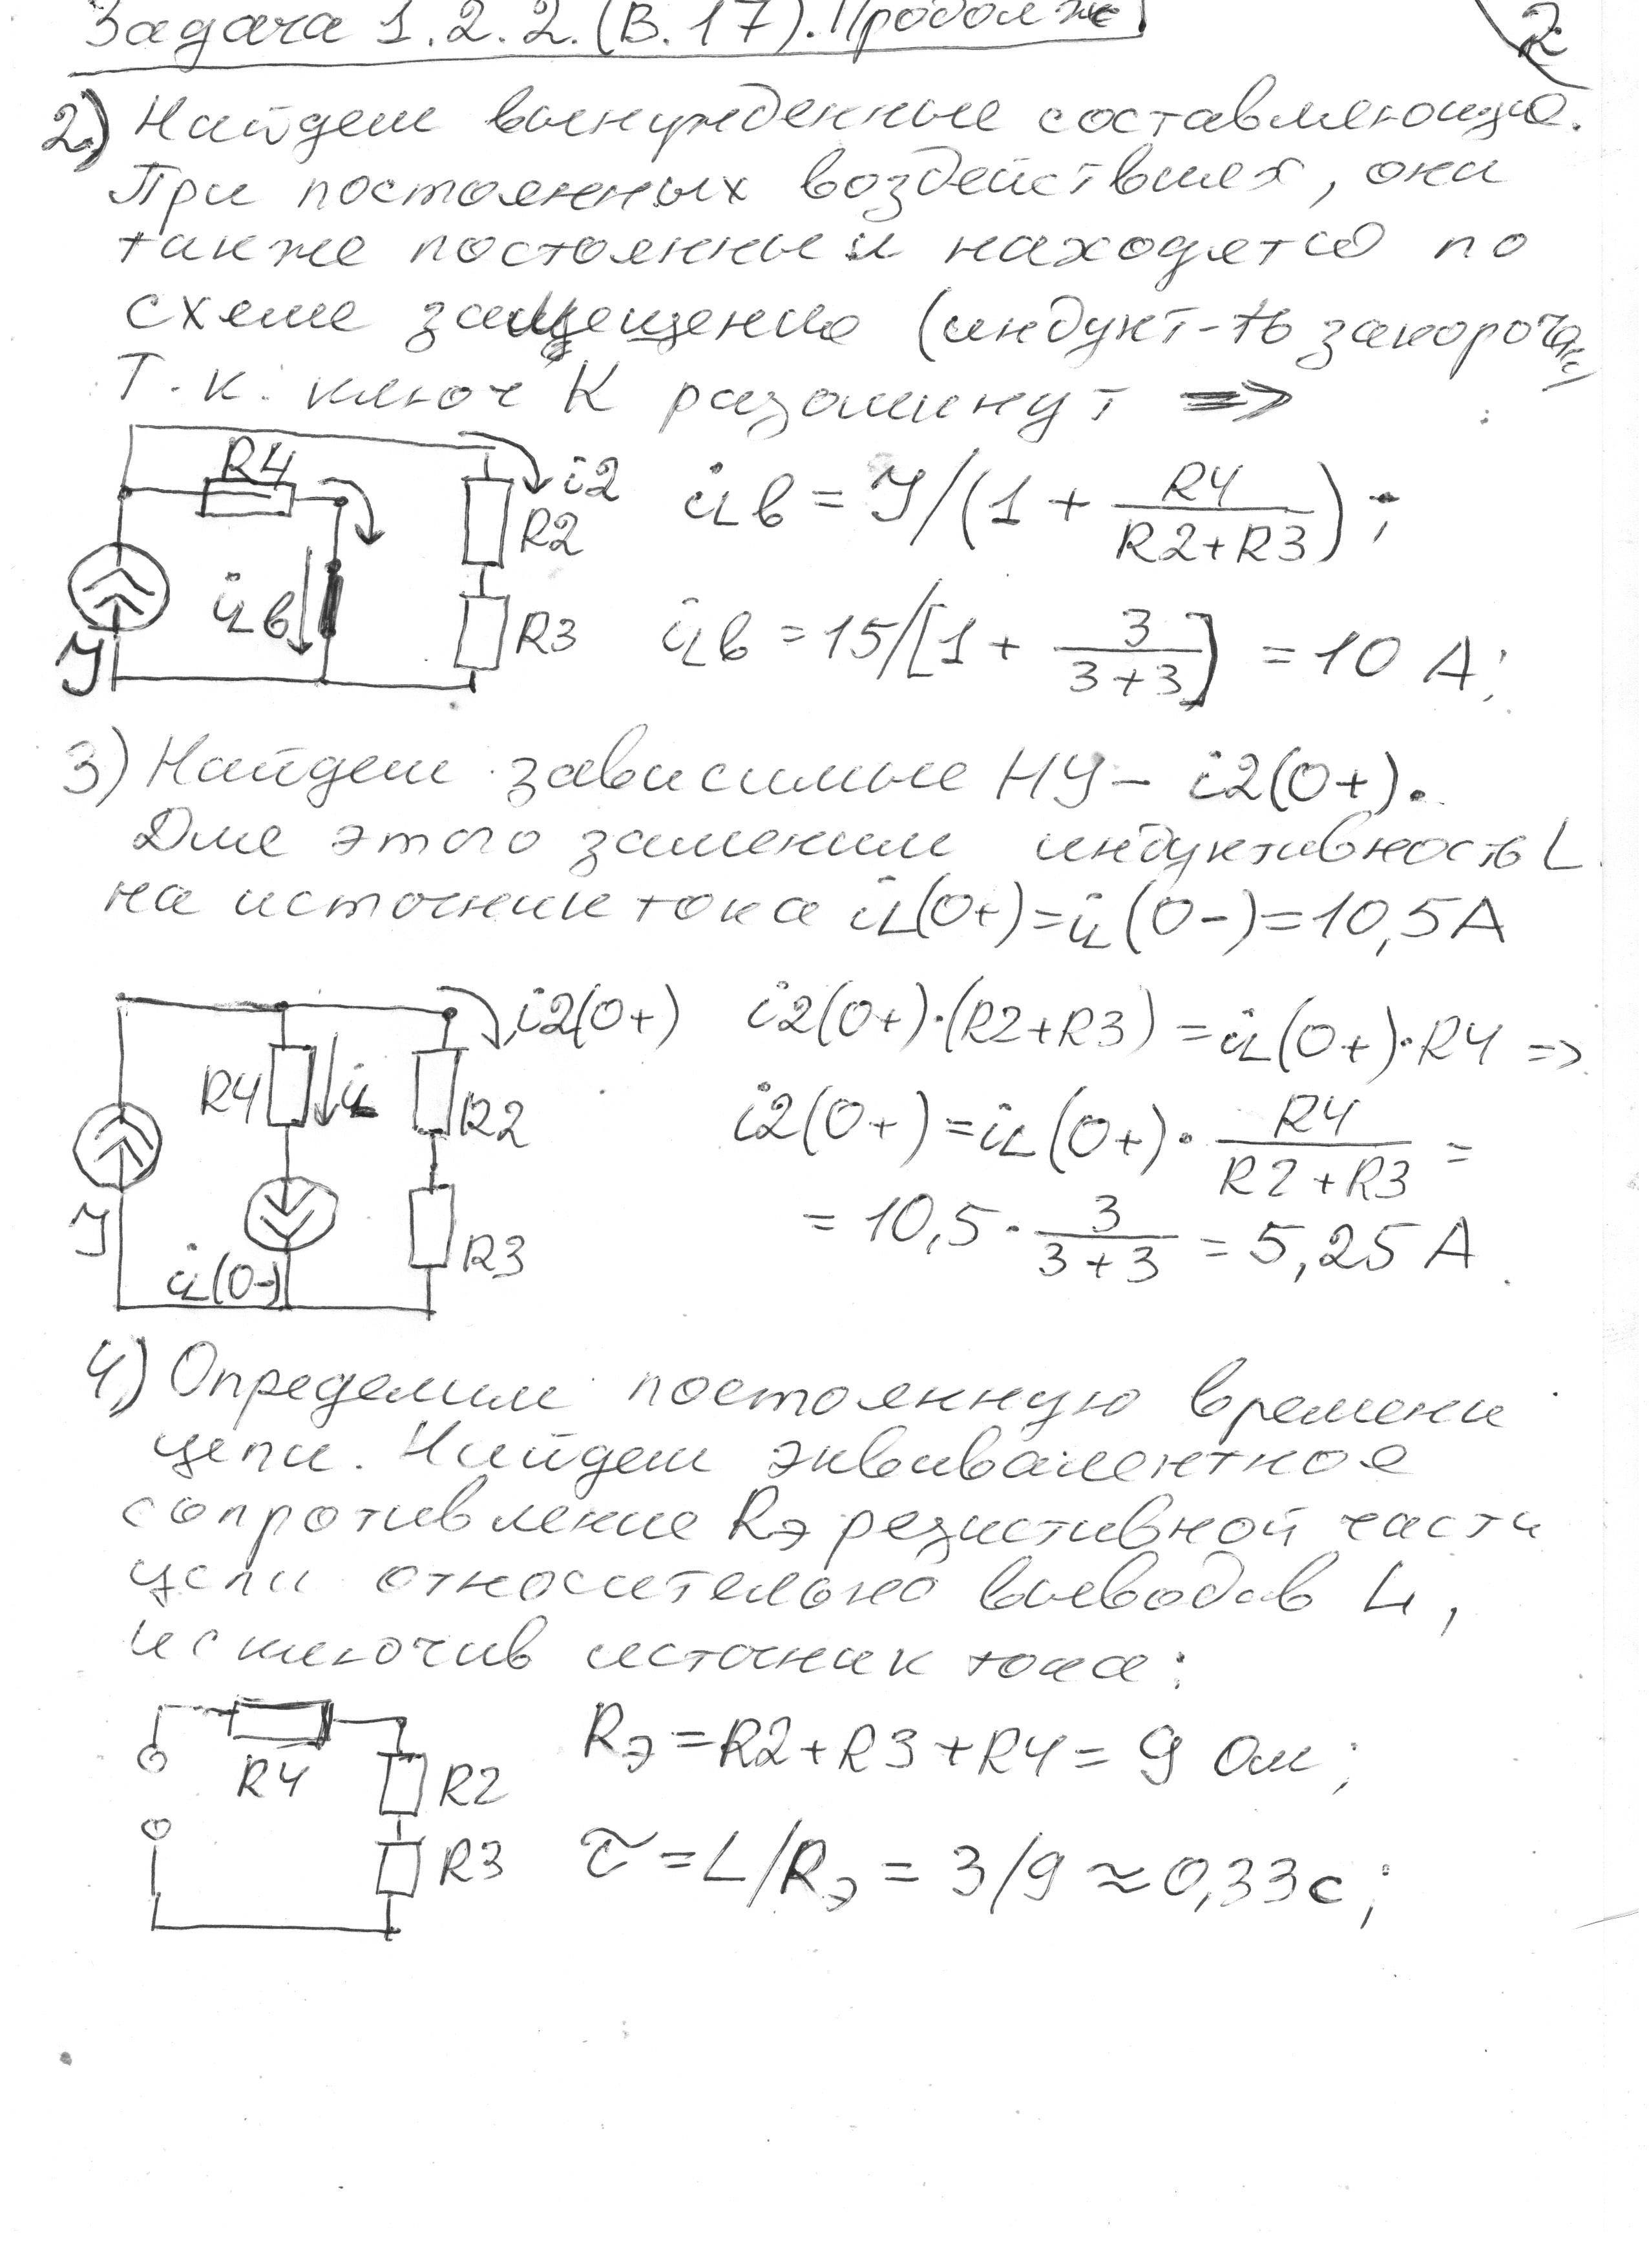 Задача 1.2.2. (В.17). Продолже
2
2.) Найдем вынужденные составляющие.
При постоянных воздействиях, они
также постоянны и находятся по
схеме замещения (индукт-ть закороче
Т.к. ключ К разомкнут =>
R4
i2
R2
iLв
R3
J
iLв = J/(1 + R4/(R2+R3));
iLв = 15/[1 + 3/(3+3)] = 10 А;
3) Найдем зависимые НУ – i2(0+).
Для этого заменим индуктивность L
на источник тока iL(0+)=iL(0-)=10,5А
i2(0+)
R4
iL
R2
R3
J
iL(0-)
i2(0+)·(R2+R3)=iL(0+)·R4 =>
i2(0+)=iL(0+)· R4/(R2+R3) =
= 10,5· 3/(3+3) = 5,25 А
4.) Определим постоянную времени
цепи. Найдем эквивалентное
сопротивление Rэ резистивной части
цепи относительно выводов L,
исключив источник тока:
R4
R2
R3
Rэ = R2+R3+R4 = 9 Ом;
τ = L/Rэ = 3/9 ≈ 0,33с;